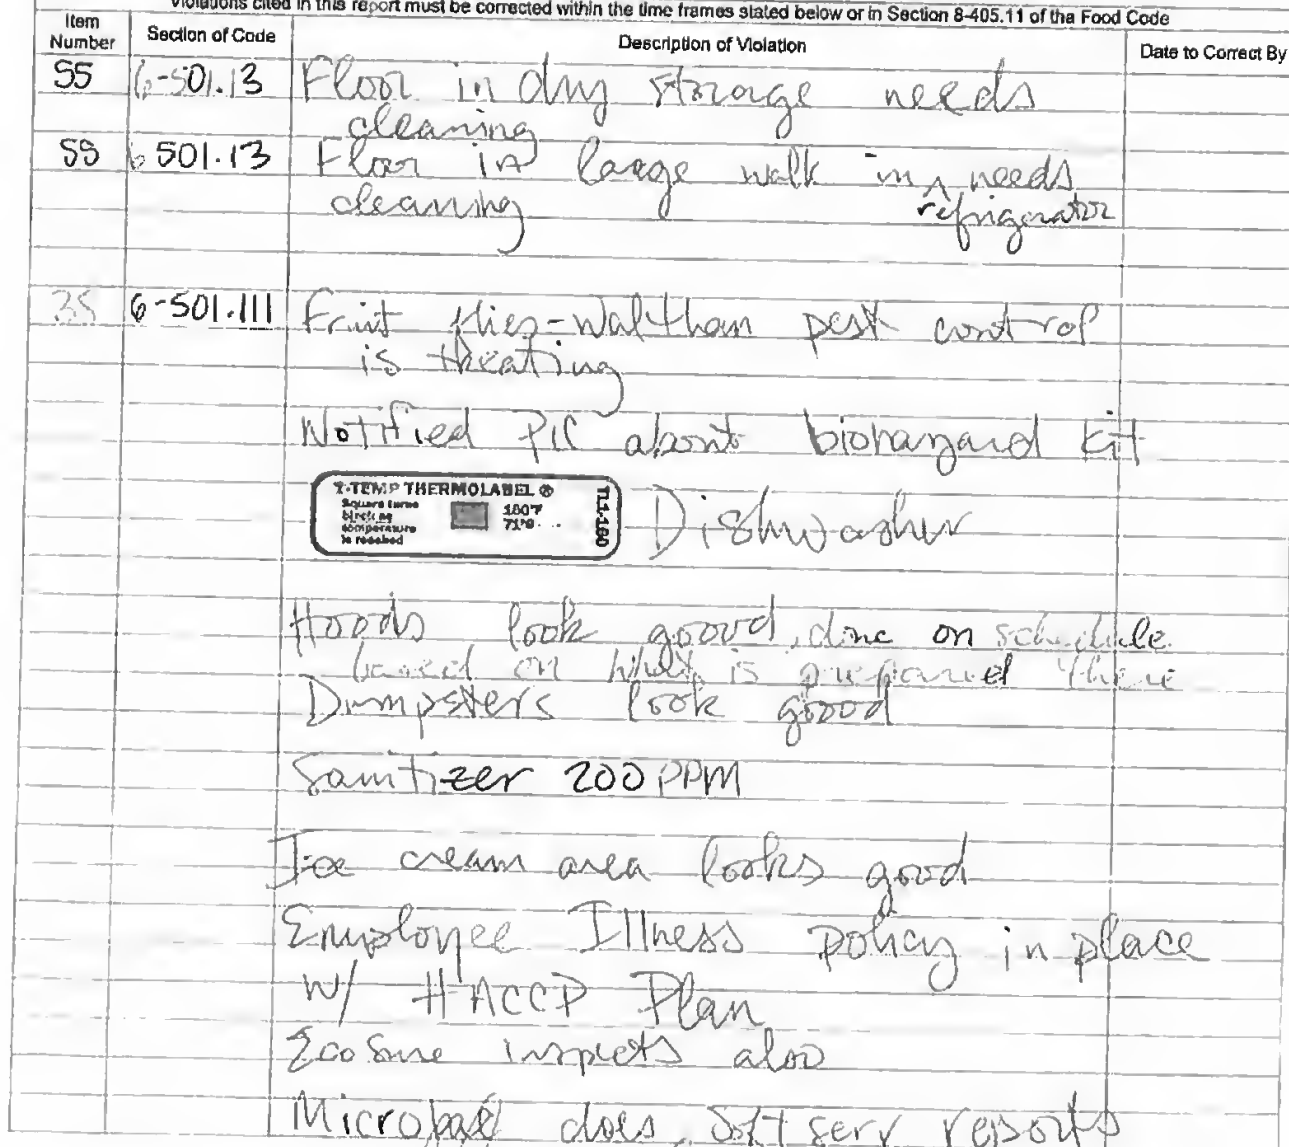 Violations cited in this report must be corrected within the time frames stated below or in Section 8-405.11 of the Food Code
Item Number Section of Code Description of Violation Date to Correct By
55 6-501.13 Floor in dry storage needs
cleaning
55 6 501.13 Floor in large walk in ^ needs
refrigerator
cleaning
35 6-501.111 Fruit flies - Waltham pest control
is treating
Notified PIC about biohazard kit
T-TEMP THERMOLABEL ®
Square turns black as temperature is reached
160°F
71°C
TL1-160
Dishwasher
Hoods look good, done on schedule
based on what is prepared there
Dumpsters look good
Sanitizer 200 PPM
Ice cream area looks good
Employee Illness policy in place
W/ HACCP Plan
EcoSure inspects also
Microbac does soft serv reports